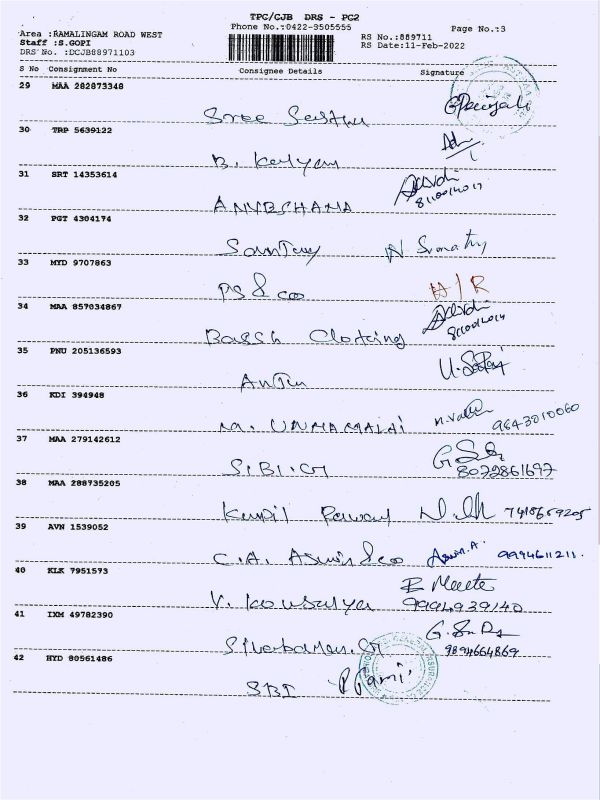 TPC/CJB DRS - PG2
Phone No.:0422-3505555
Page No.:3
Area :RAMALINGAM ROAD WEST
Staff :S.GOPI
DRS No. :DCJB88971103
RS No.:889711
RS Date:11-Feb-2022
S No Consignment No Consignee Details Signature
29 MAA 282873348
Sree
30 TRP 5639122
B. Kalyan
31 SRT 14353614
ANUBSHAMA
32 PGT 4304174
N Sumathy
33 MYD 9707863
PS & co N/R
34 MAA 857034867
35 PNU 205136593
36 KDI 394948
M. UNNAMALAI 9643010060
37 MAA 279142612
SIBI.G 8072861697
38 MAA 288735205
Kumil 7418659205
39 AVN 1539052
C.A. Aswin & co Aswin.A. 9994611211.
40 KLK 7951573
V. Kowsalya 9994939140
41 IXM 49782390
9894664869
42 HYD 80561486
SBI